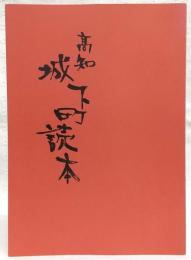 高知
城下町読本